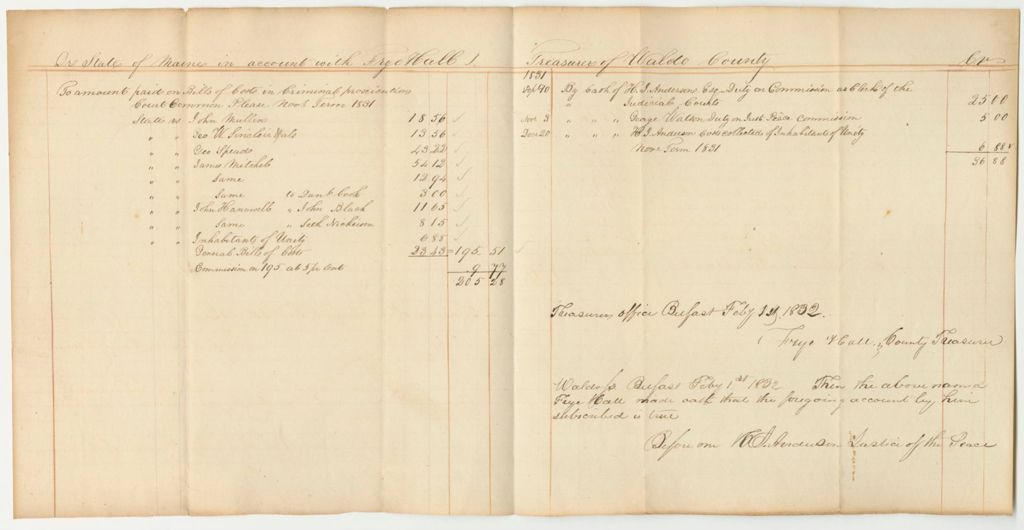 Dr State of Maine in account with Frye Hall Treasurer of Waldo County Cr
To amount paid on Bills of Cost in Criminal prosecutions
Court Common Pleas Novr Term 1831
State vs John Mullin 18 56
" " Geo W. Sinclair 13 56
" " Geo Speads 43 22
" " James Mitchell 54 12
" " Same 12 94
" " Same to Danl Cook 3 00
" " John Hanniwell " John Black 11 65
" " Same " Seth Nickerson 8 15
" " Inhabitants of Unity 6 88
General Bills of Costs 23 43 = 195 51
Commission on 195 at 5 pr cent 9 77
205 28
1831
Sept By Cash of H. J. Anderson Esq. Duty on Commission as Clerk of the
" Judicial Courts 25 00
Nov 3 " " " George Watson Duty on Just. Peace commission 5 00
Dec 20 " " " H J Anderson Costs collected of Inhabitants of Unity
Novr Term 1831 6 88
36 88
Treasurers office Belfast Feby 1st 1832.
Frye Hall, County Treasurer
Waldo ss Belfast Feby 1st 1832 Then the above named
Frye Hall made oath that the foregoing account by him
subscribed is true
Before me H J Anderson Justice of the Peace